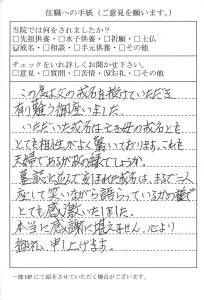 住職への手紙（ご意見を願います。）
当院では何をされましたか？
□先祖供養・□水子供養・□祈願・□土仏
☑戒名・□相談・□手元供養・□その他
チェックをいれ詳しくお聞かせ下さい。
□意見・□質問・□苦情・☑お礼・□その他
この度は父の戒名を授けていただき
有り難う御座いました。
いただいた戒名は亡き母の戒名とも
とても相性がよく驚いております。これも
夫婦である故の縁でしょうか。
墓誌に並んで刻まれた戒名は、まるで二人
座して笑いながら語らっているかの様で
とても感激いたしました。
本当に感謝に堪えません。心より
御礼申し上げます。
一部HPにて紹介させていただく場合がございます。